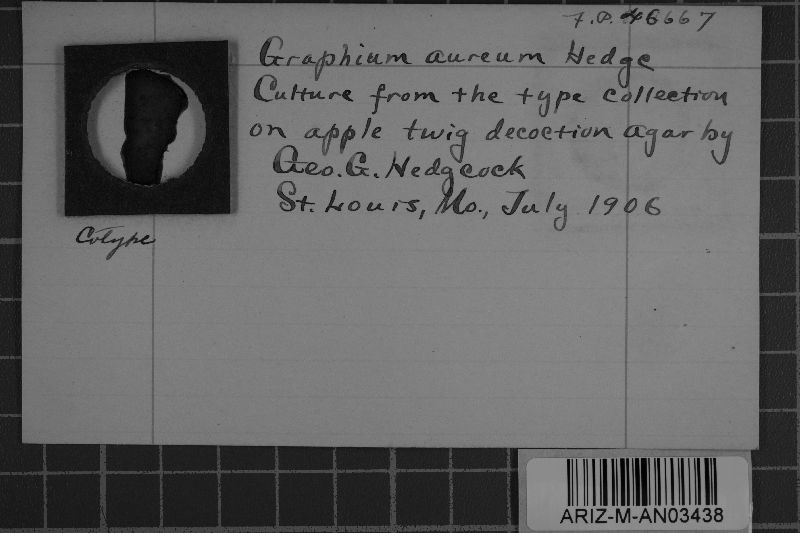 F.P. 46667
Graphium aureum Hedge
Culture from the type collection
on apple twig decoction agar by
Geo. G. Hedgcock
St. Louis, Mo., July 1906
Cotype
ARIZ-M-AN03438